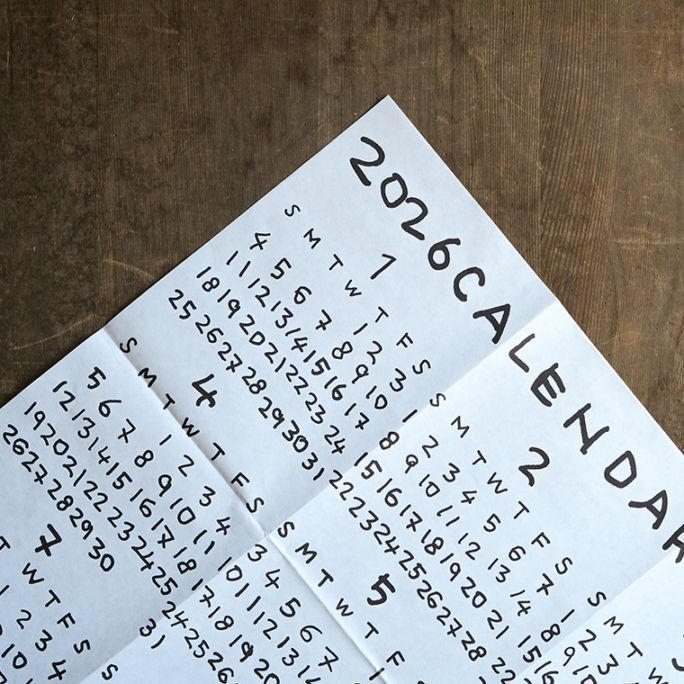 2026 CALENDAR
1
S M T W T F S
1 2 3
4 5 6 7 8 9 10
11 12 13 14 15 16 17
18 19 20 21 22 23 24
25 26 27 28 29 30 31
2
S M T W T F S
1 2 3 4 5 6 7
8 9 10 11 12 13 14
15 16 17 18 19 20 21
22 23 24 25 26 27 28
S M T W
1 2 3
8 9 10
15 16
22
4
S M T W T F S
1 2 3 4
5 6 7 8 9 10 11
12 13 14 15 16 17 18
19 20 21 22 23 24 25
26 27 28 29 30
5
S M T W T F S
3 4 5 6 7
10 11 12 13 14
17 18 19 20
24 25 26
31
7
T W T F S
1 2 3 4
10